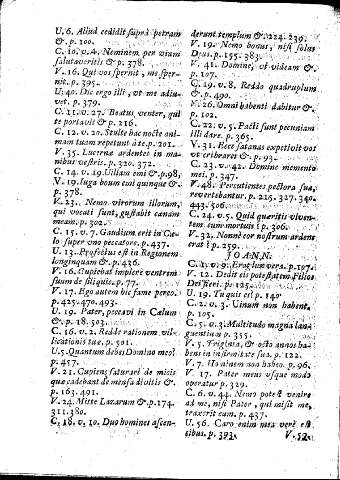 V. 6. Aliud cecidit suprà petram
&. p. 100.
C. 10. v. 4. Neminem per viam
salutaveritis &. p. 378.
V. 16. Qui vos spernit, me sper-
nit. p. 395.
V. 40. Dic ergo illi, ut me adiu-
vet. p. 379.
C. 11. v. 27. Beatus venter, qui
te portavit &. p. 216.
C. 12. v. 20. Stulte hac nocte ani-
mam tuam repetunt à te. p. 201.
V. 35. Lucernæ ardentes in ma-
nibus vestris. p. 320. 372.
C. 14. v. 19. Villam emi &. p. 98,
V. 19. Iuga boum emi quinque &.
p. 378.
V. 23. Nemo virorum illorum,
qui vocati sunt, gustabit cœnam
meam. p. 302.
C. 15. v. 7. Gaudium erit in Cæ-
lo super uno peccatore. p. 437.
V. 13. Profectus est in Regionem
longinquam &. p. 436.
V. 16. Cupiebat implere ventrem
suum de siliquis. p. 77.
V. 17. Ego autem hic fame pereo.
p. 425. 470. 493.
V. 19. Pater, peccavi in Cælum
&. p. 18. 503.
C. 16. v. 2. Redde rationem vil-
licationis tuæ. p. 501.
V. 5. Quantum debes Domino meo?
p. 457.
V. 21. Cupiens saturari de micis
quæ cadebant de mensa divitis &.
p. 163. 491.
V. 24. Mitte Lazarum &. p. 174.
311. 380.
C. 18. v. 10. Duo homines ascen-
derunt templum &. 224. 239.
V. 19. Nemo bonus, nisi solus
Deus. p. 155. 383.
V. 41. Domine, ut videam &.
p. 107.
C. 19. v. 8. Reddo quadruplum
&. p. 490.
V. 26. Omni habenti dabitur &.
p. 102.
C. 22. v. 5. Pacti sunt pecuniam
illi dare. p. 365.
V. 31. Ecce satanas expetivit vos
ut cribraret &. p. 93.
C. 23. v. 42. Domine memento
mei. p. 347.
V. 48. Percutientes pectora sua,
revertebantur. p. 215. 327. 340.
443. 506.
C. 24. v. 5. Quid quæritis viven-
tem cum mortuis? p. 306.
V. 32. Nonne cor nostrum ardens
erat? p. 259.
JOANN.
C. 1. v. 9. Erat lux vera. p. 107.
V. 12. Dedit eis potestatem Filios
Dei fieri. p. 125.
V. 19. Tu quis es? p. 140
C. 2. v. 3. Vinum non habent.
p. 105.
C. 5. v. 3. Multitudo magna lan-
guentium p. 355.
V. 5. Triginta, & octo annos ha-
bens in infirmitate sua. p. 122.
V. 7. Hominem non habeo. p. 96.
V. 17. Pater meus usque modo
operatur p. 329.
C. 6. v. 44. Nemo potest venire
ad me, nisi Pater, qui misit me,
traxerit eum. p. 437.
V. 56. Caro enim mea verè est
cibus. p. 393.
V. 52.